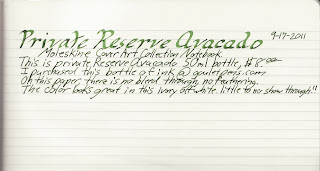 Private Reserve Avacado 9-17-2011
Moleskine Cover Art Collection Notebook
This is private Reserve Avacado 50ml bottle, $8.00
I purchased this bottle at ink @ gouletpens.com
On this paper, there is no bleed through, no feathering.
The color looks great in this ivory off white little to no show through!!